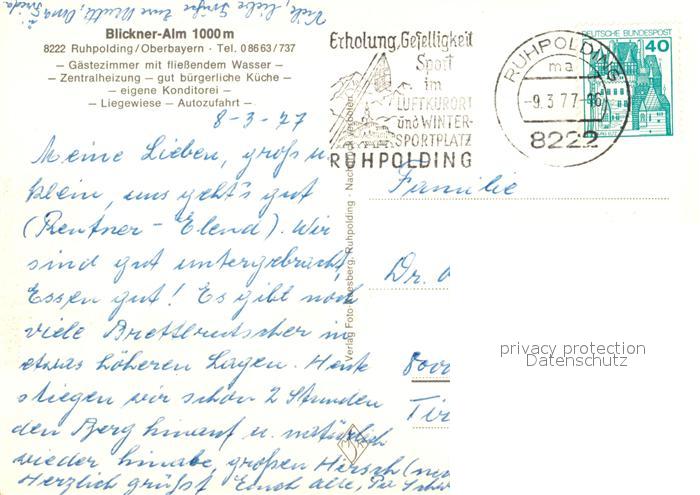 Blickner-Alm 1000 m
8222 Ruhpolding/Oberbayern · Tel. 08663/737
— Gästezimmer mit fließendem Wasser —
— Zentralheizung — gut bürgerliche Küche —
— eigene Konditorei —
— Liegewiese — Autozufahrt —
8-3-77
Meine Lieben, groß u
klein, uns geht's gut
(Rentner - Elend). Wir
sind gut untergebracht,
Essen gut! Es gibt noch
viele Brettlrutscher in
etwas höheren Lagen. Heute
stiegen wir schon 2 Stunden
den Berg hinauf u. natürlich
wieder hinab, großen Hirsch
Herzlich grüßt Euch alle,
Erholung, Geselligkeit
Sport
im
LUFTKURORT
und WINTER-
SPORTPLATZ
RUHPOLDING
RUHPOLDING
ma
-9.3.77-16
8222
DEUTSCHE BUNDESPOST
40
Verlag Foto Ruhpolding - Nachdruck verboten
Familie
Dr.
privacy protection
Datenschutz